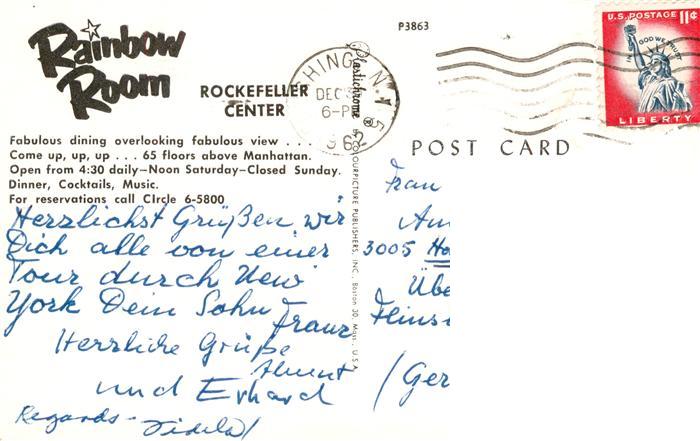 Rainbow
Room
ROCKEFELLER
CENTER
Fabulous dining overlooking fabulous view . . .
Come up, up, up . . . 65 floors above Manhattan.
Open from 4:30 daily—Noon Saturday—Closed Sunday.
Dinner, Cocktails, Music.
For reservations call CIrcle 6-5800
Herzlichst Grüßen wir
Dich alle von einer
Tour durch New
York Dein Sohn Franz
Herzliche Grüße
und Erhard
Regards-
P3863
HING N.Y.
DEC
6-P
Plastichrome ®
COLOURPICTURE PUBLISHERS, INC., Boston 30, Mass., U.S.A.
POST CARD
U.S. POSTAGE 11¢
IN GOD WE TRUST
LIBERTY
Frau
3005
Übe
(Ger